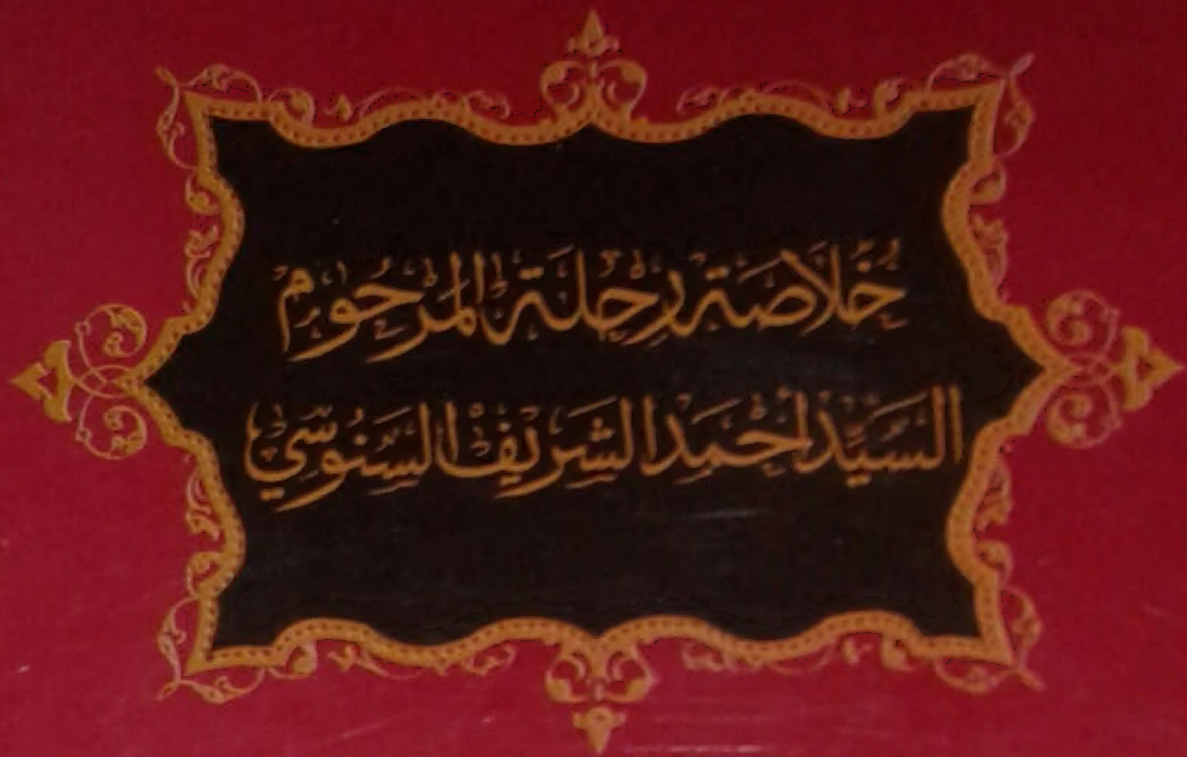 خُلَاصَة رِحْلَة المَرْحُوم
السَّيِّد أَحْمَد الشَّرِيف السَّنُوسِي